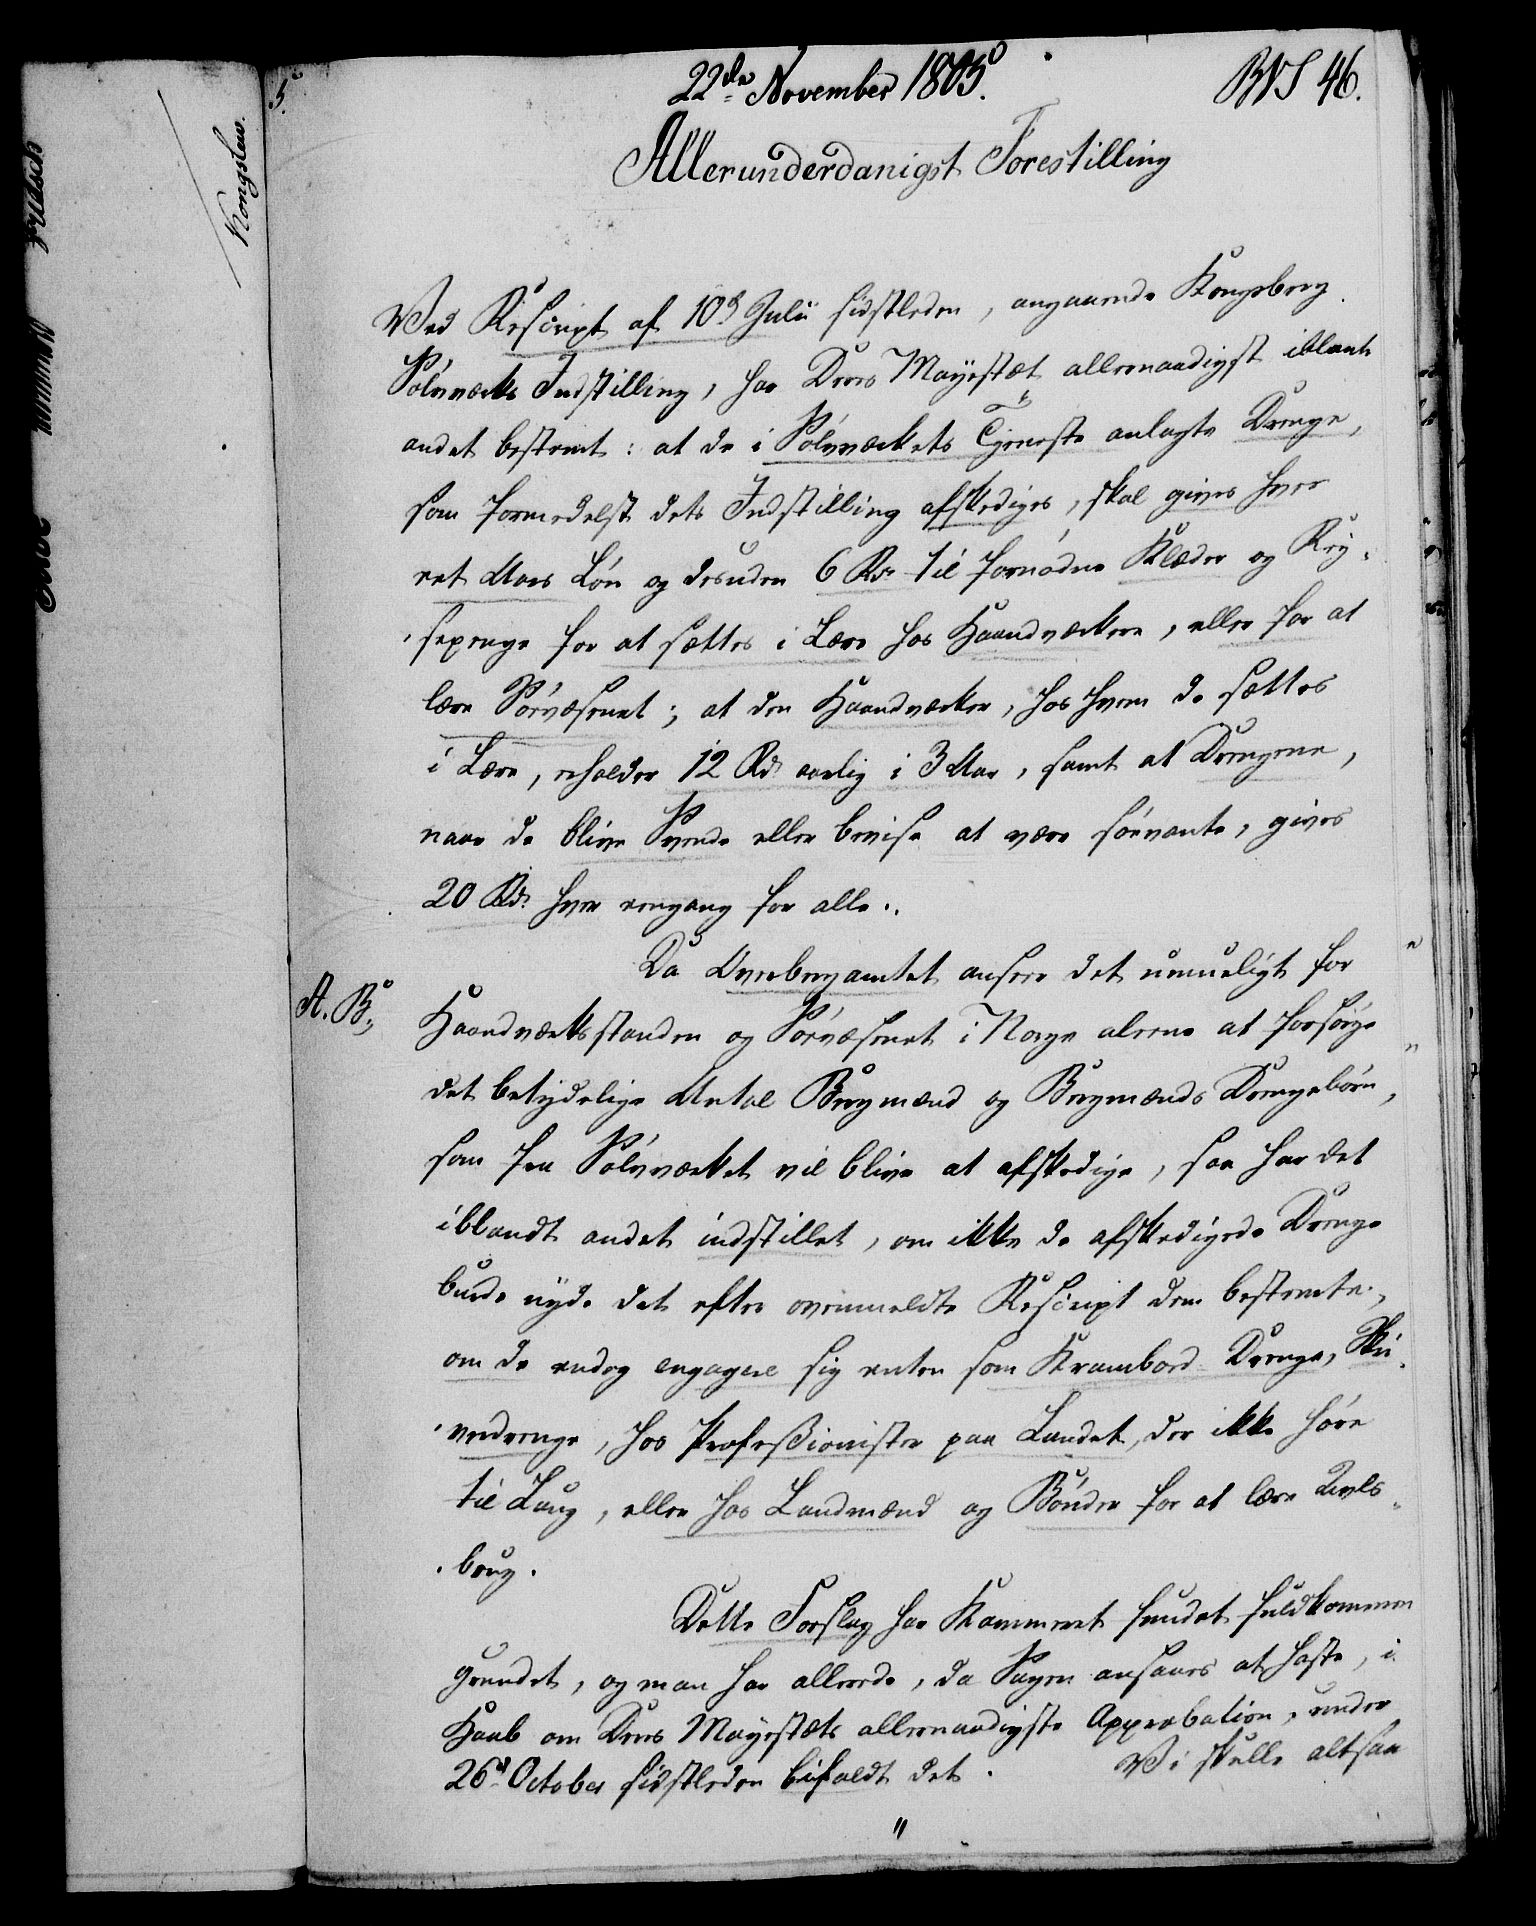 22de November 1805.
BVS 46.
5.
Kongslew.
Allerunderdanigst Forestilling
Ved Rescript af 10d Julii sidstleden, angaaende Kongsberg
Sölvværks Indstilling, har Deres Mayestæt allernaadigst iblant
andet bestemt: at de i Sölvværkets Tjeneste antagte Drenge,
som formedelst dets Indstilling afskediges, skal gives hver
eet Aars Lön og desuden 6 Rd. til fornödne Klæder og Rey-
sepenge for at sættes i Lære hos Haandværkere, eller for at
lære Söevæsenet; at den Haandværker, hos hvem de sættes
i Lære, erholder 12 Rd. aarlig i 3 Aar, samt at Drengene,
naar de blive Svende eller bevise at være söevante, gives
20 Rd. hver eengang for alle.
Da Overbergamtet ansees det umueligt for
A. B.
Haandværksstanden og Söevæsenet i Norge alene at forsörge
det betydelige Antal Bergmænd og Bergmænds Drengebörn,
som fra Sölvværket vil blive at afskedige, saa har det
iblandt andet indstillet, om ikke de afskedigede Drenge
burde nyde det efter ovenmeldte Rescript dem bestemte,
om de endog engagere sig enten som Krambod Drenge, Skri-
verdrenge, hos Professionister paa Landet, der ikke höre
til Laug, eller hos Landmænd og Bönder for at lære Avls-
brug.
Dette Forslag har Kammeret fundet fuldkommen
grundet, og man har allerede, da Sagen ansaaes at haste, i
Haab om Deres Mayestæts allernaadigste Approbation, under
26d October sidstleden bifaldt det. Vi skulle altsaa
"